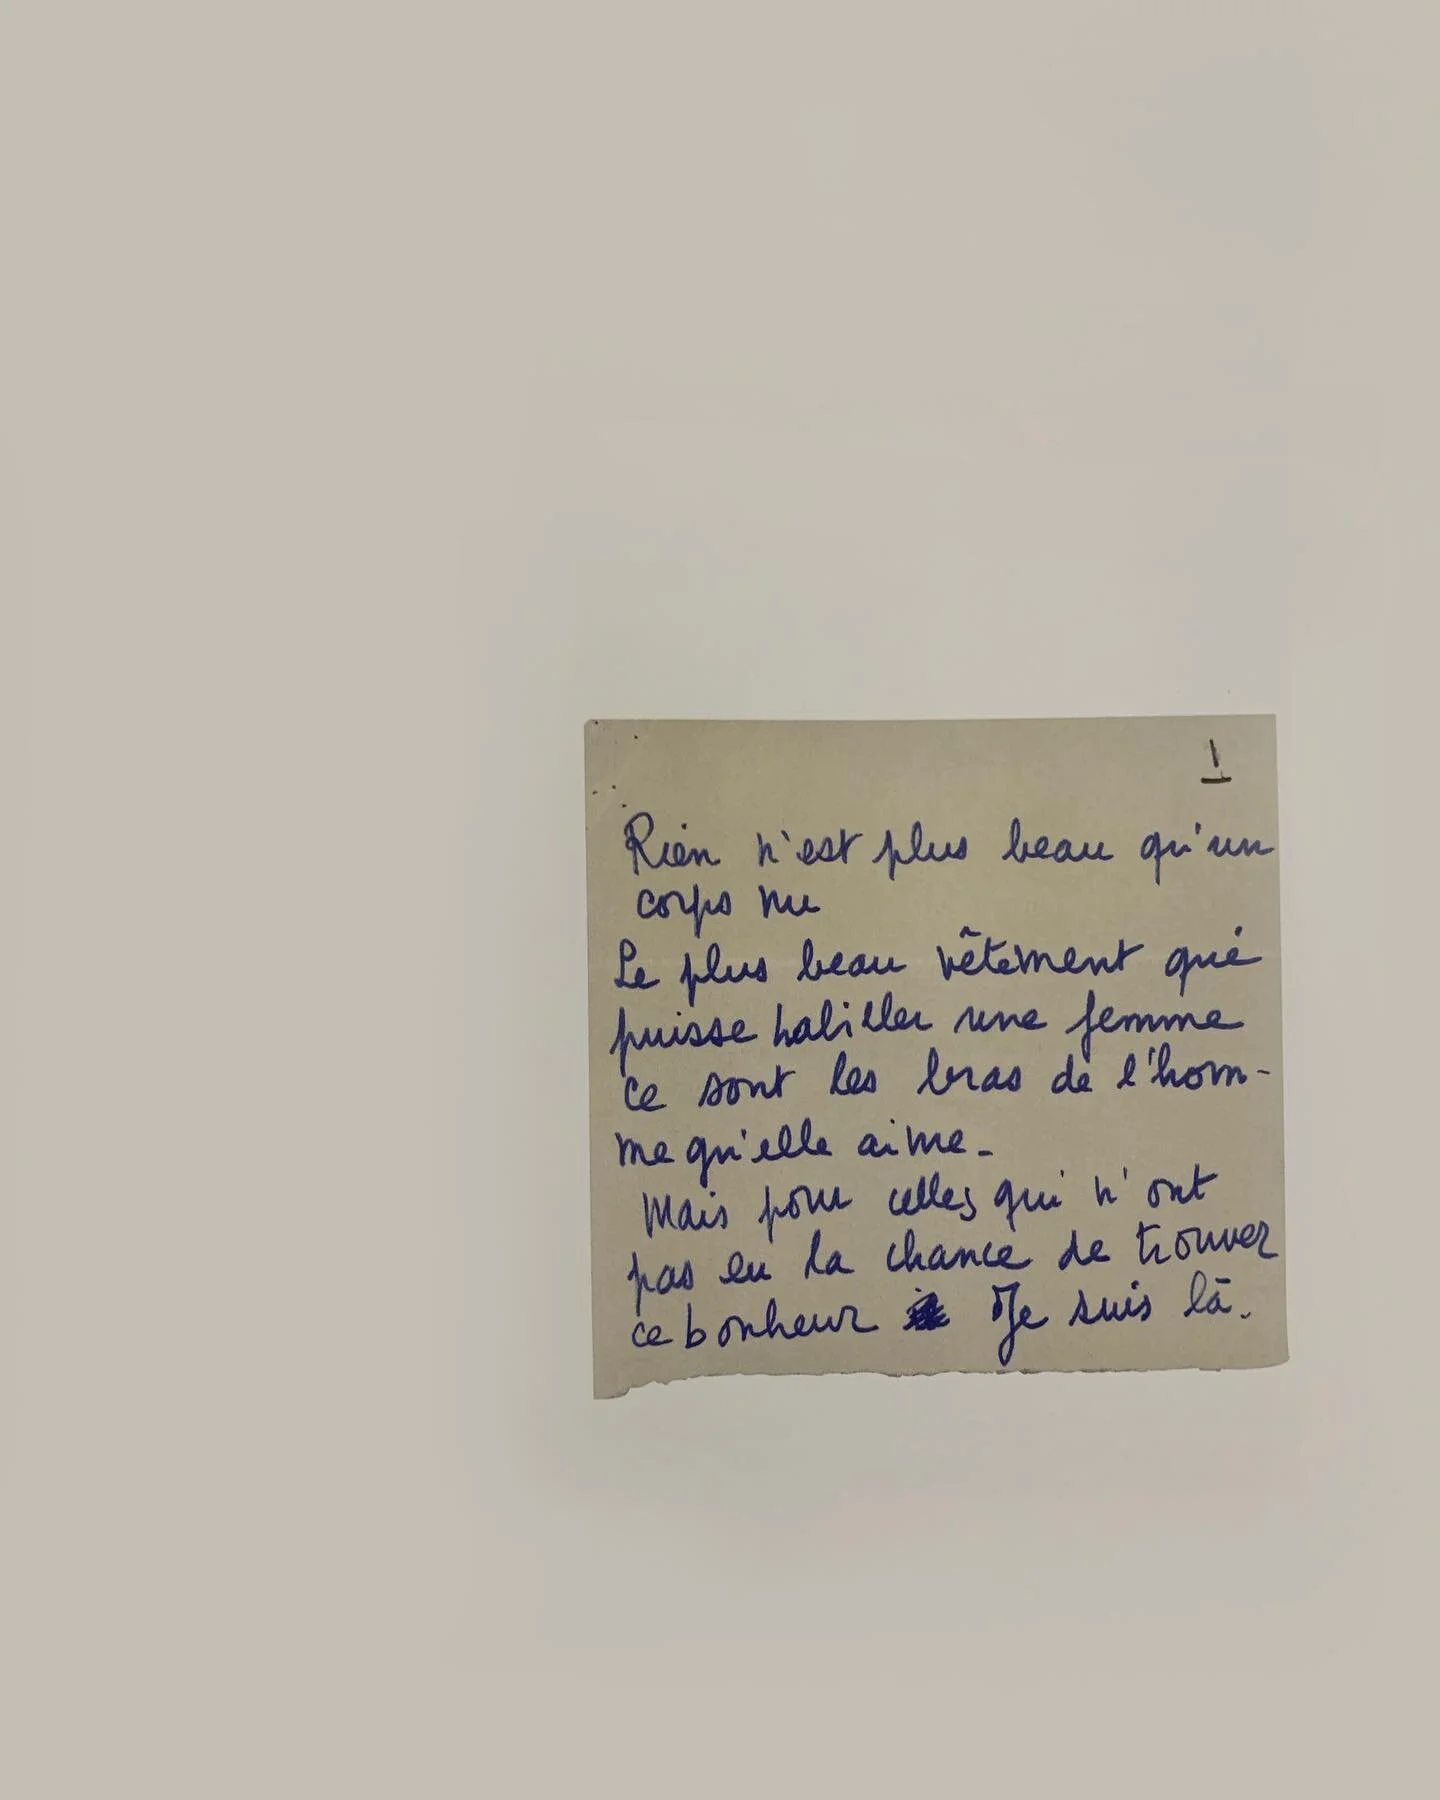 1
Rien n'est plus beau qu'un
corps nu
Le plus beau vêtement qui
puisse habiller une femme
ce sont les bras de l'hom-
me qu'elle aime_
Mais pour celles qui n'ont
pas eu la chance de trouver
ce bonheur Je suis là.